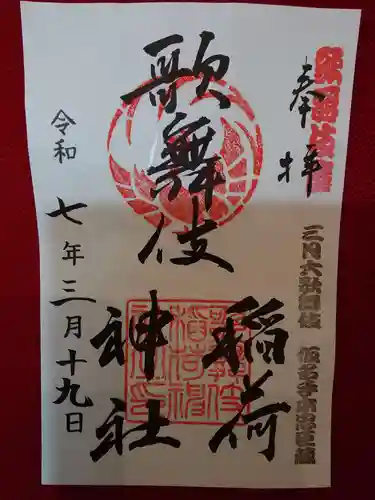 奉拝
歌舞伎座
三月大歌舞伎 仮名手本忠臣蔵
歌舞伎
稲荷
神社
令和七年三月十九日